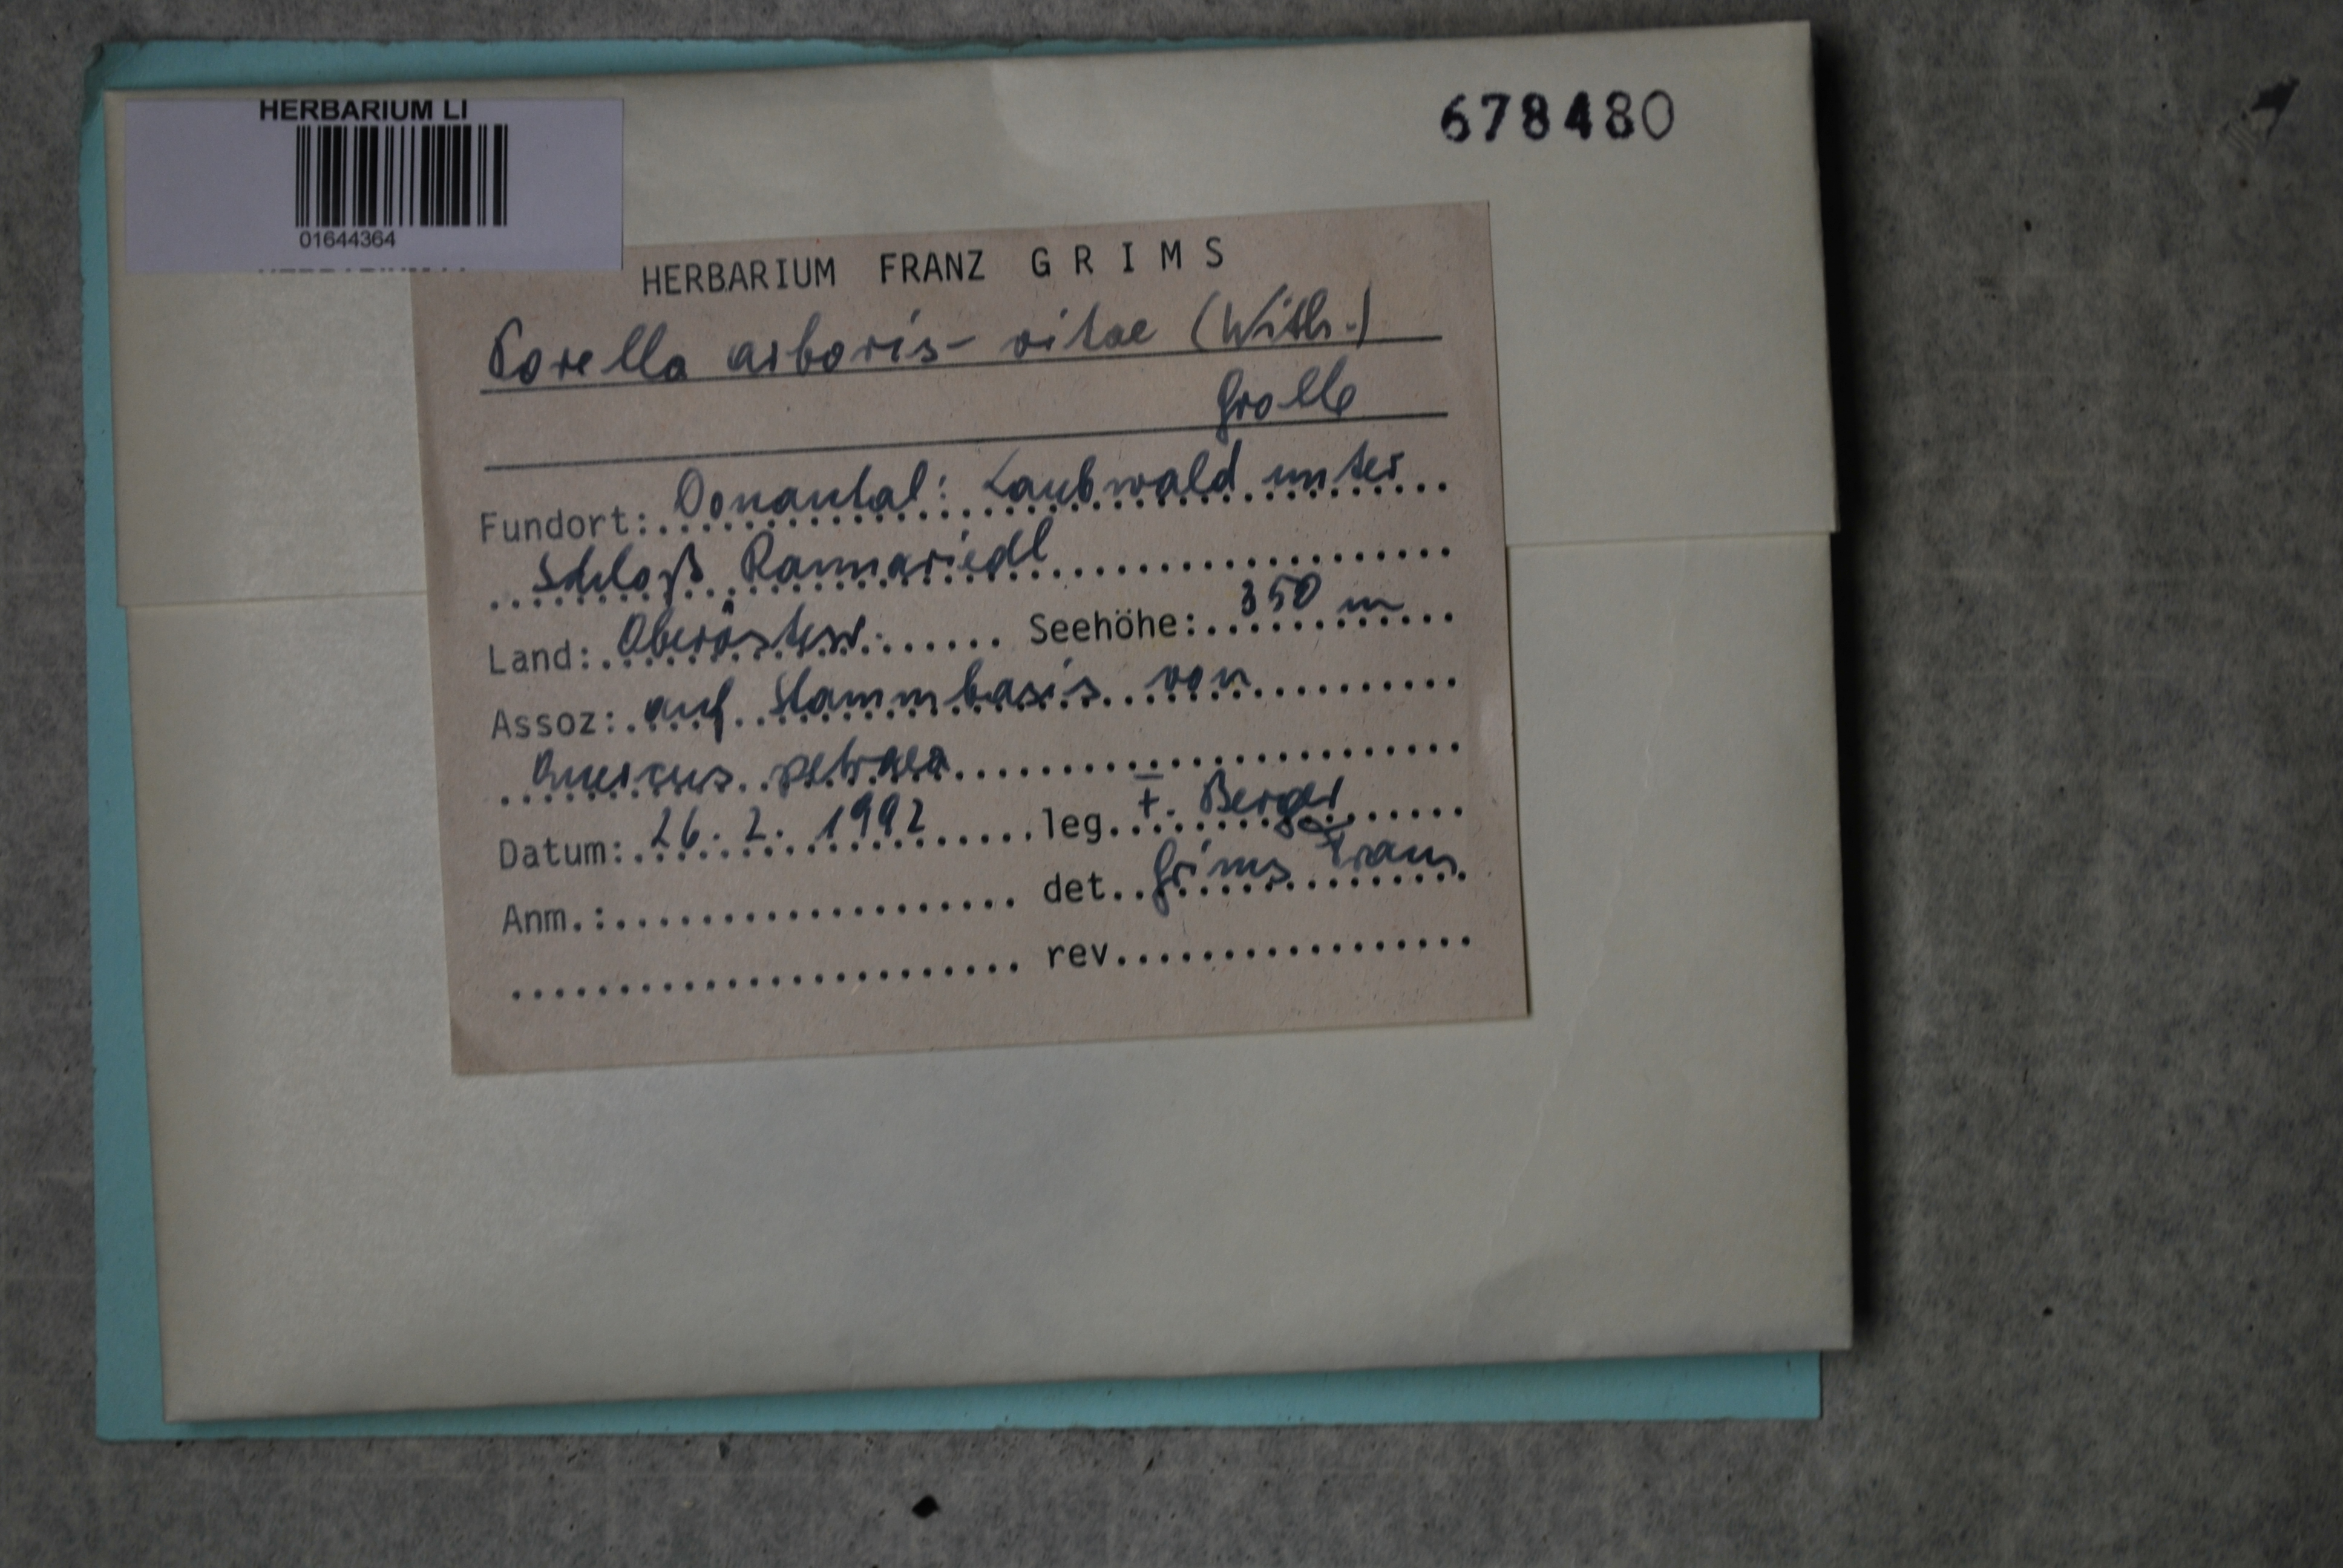 HERBARIUM LI
01644364
678480
HERBARIUM FRANZ GRIMS
Porella arboris-vitae (With.)
Grolle
Fundort: Donautal: Laubwald unter
Schloß Rannariedl
Land: Oberösterr. Seehöhe: 350 m
Assoz: auf Stammbasis von
Quercus petraea
Datum: 26. 2. 1992 leg. F. Berger
Anm.: det. Grims Franz
rev.